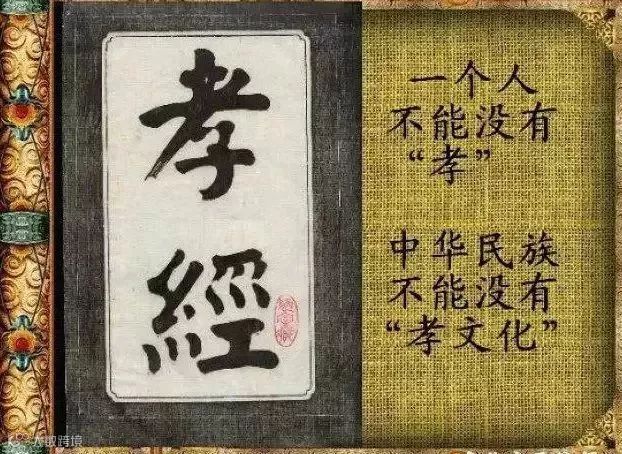 孝經
一个人
不能没有
“孝”
中华民族
不能没有
“孝文化”
大数跨境